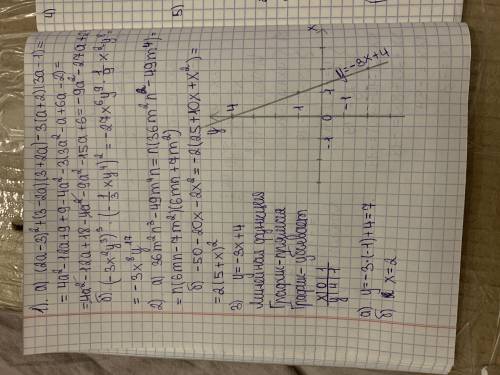 1. а) (2a-3)²+(3-2a)(3+2a)-3(a+2)(3a-1)=
=4a²-12a+9+9-4a²-3(3a²-a+6a-2)=
=4a²-12a+18-4a²-9a²-15a+6=-9a²-27a+
б) (-3x²y³)³·(-1/3 xy⁴)²=-27x⁶y⁹·1/9 x²y⁸=
=-3x⁸y¹⁷
2) а) 36m²n³-49m⁴n=n(36m²n²-49m⁴)=
=n(6mn-7m²)(6mn+7m²)
б) -50-20x-2x²=-2(25+10x+x²)=
=2(5+x)²
3) y=-3x+4
Линейная функция
График-прямая
График-убывает
x|0|1
y|4|1
а) y=-3·(-1)+4=7
б) x=2
y=-3x+4
y
x
4
1
0
1
-1
-1
4)
5)